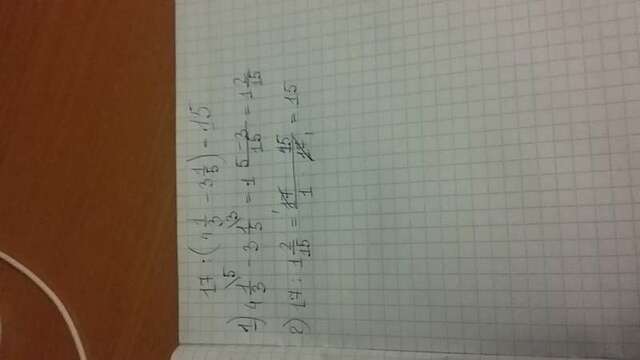 17 : (4 1/3 - 3 1/5) = 15
1) 4 1/3 \5 - 3 1/5 \3 = 1 5-3/15 = 1 2/15
2) 17 : 1 2/15 = 17/1 15/17 = 15